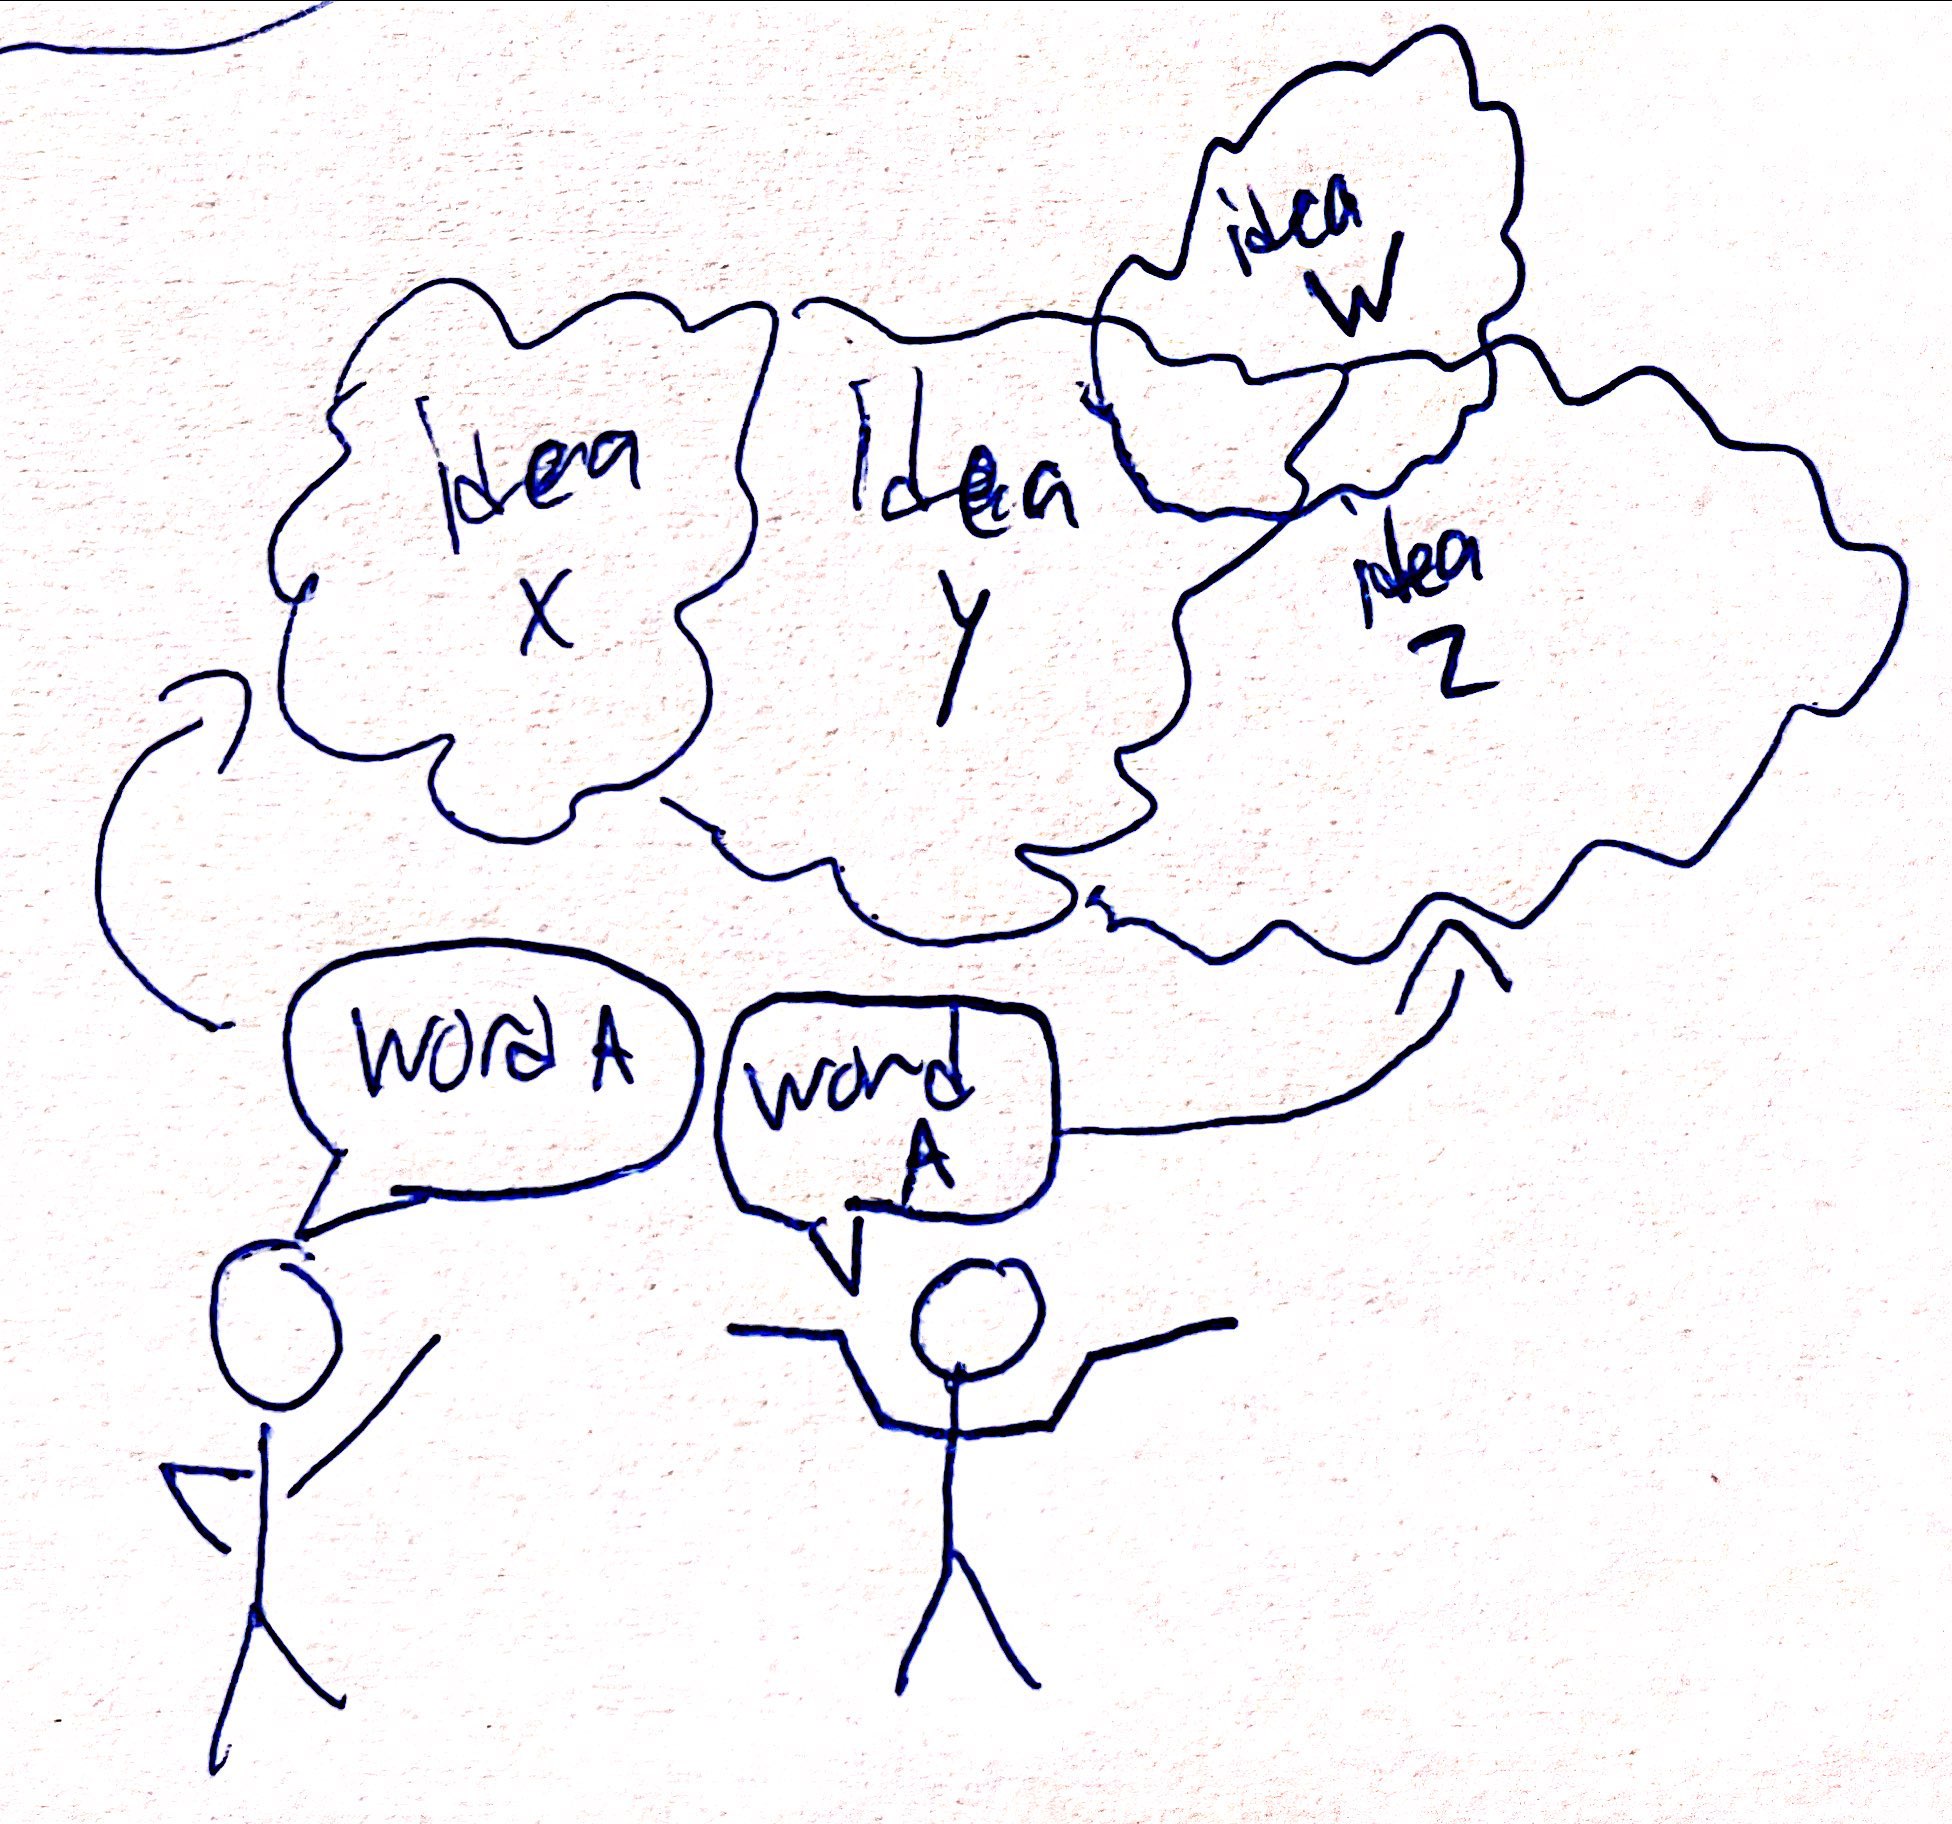 idea
W
idea
X
Idea
Y
idea
Z
Word A
Word
A